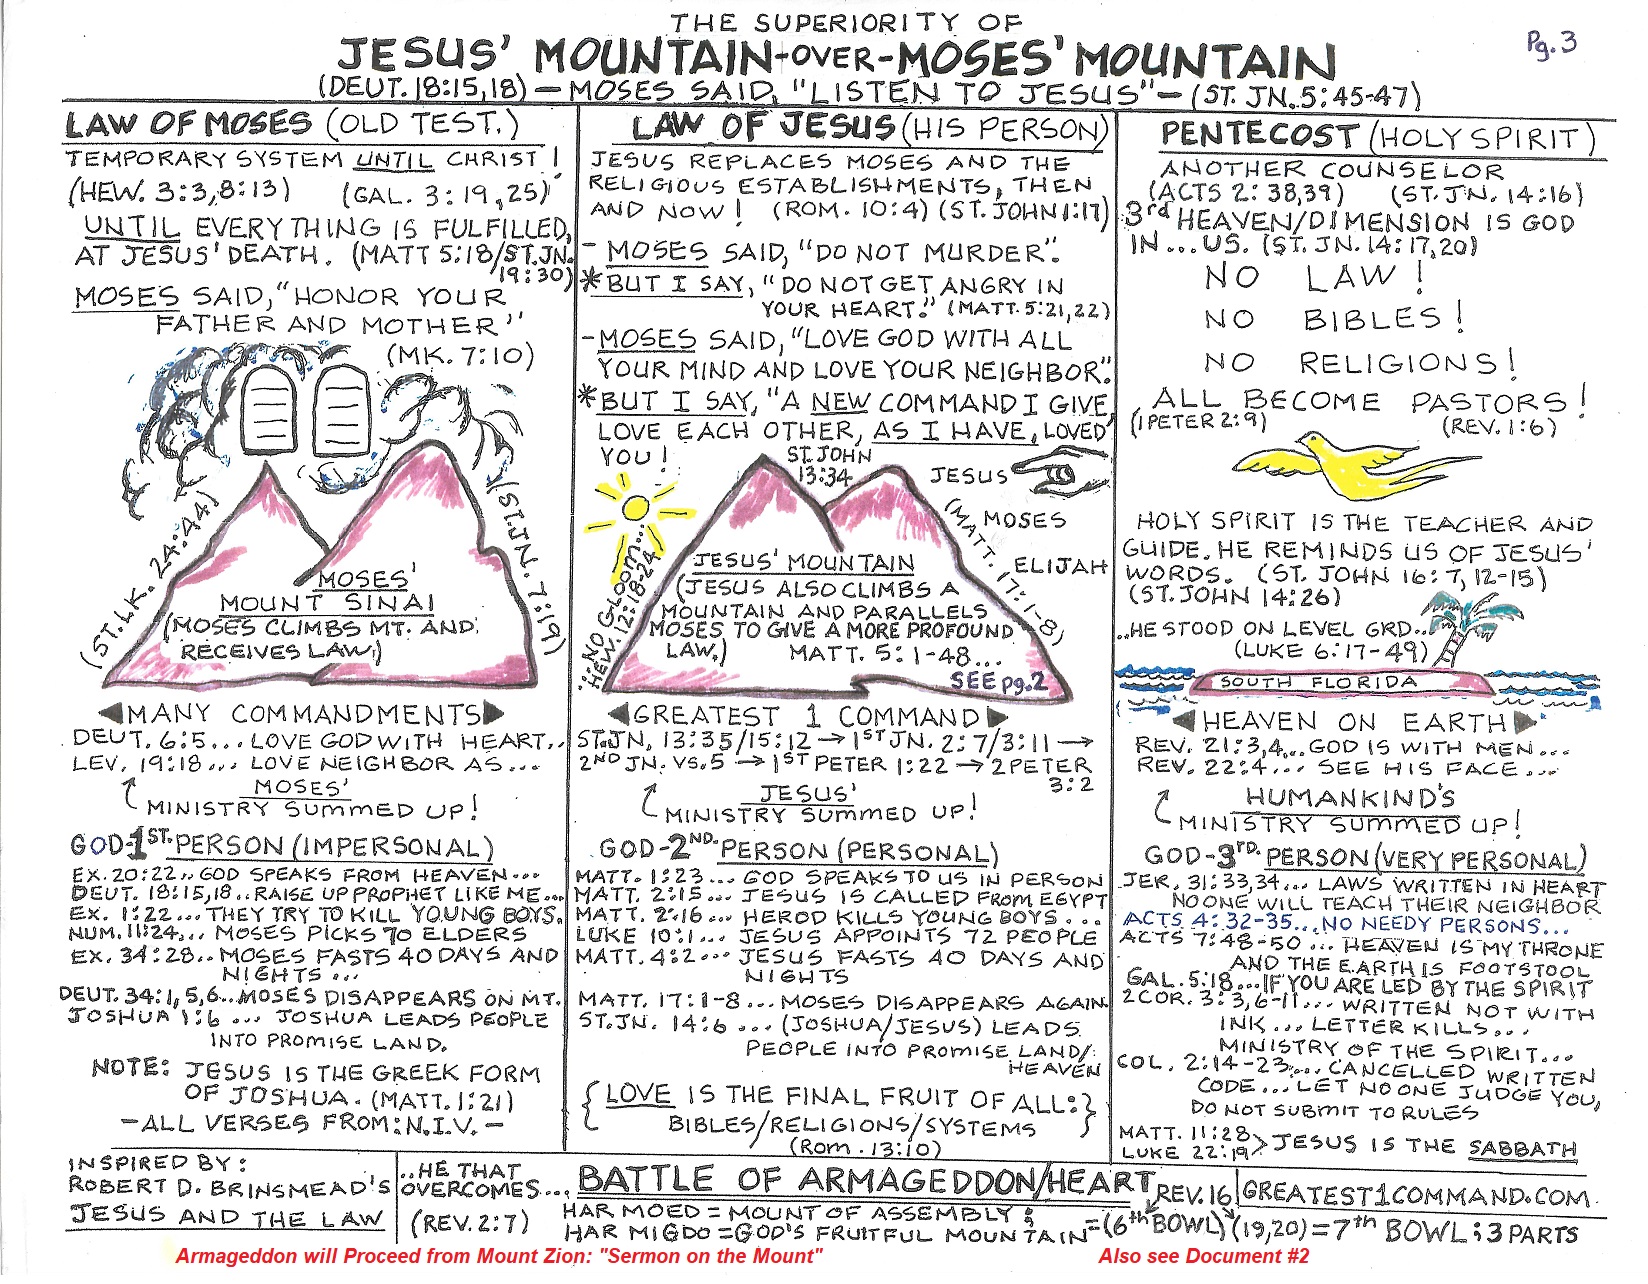 THE SUPERIORITY OF
JESUS' MOUNTAIN-OVER-MOSES' MOUNTAIN
Pg. 3
(DEUT. 18:15,18) — MOSES SAID, "LISTEN TO JESUS" — (ST. JN. 5:45-47)
LAW OF MOSES (OLD TEST.)
TEMPORARY SYSTEM UNTIL CHRIST!
(HEW. 3:3,8:13) (GAL. 3:19,25)
UNTIL EVERYTHING IS FULFILLED,
AT JESUS' DEATH. (MATT 5:18/ST.JN.
19:30)
MOSES SAID, "HONOR YOUR
FATHER AND MOTHER"
(MK. 7:10)
(ST. LK. 24:44)
(ST. JN. 7:19)
MOSES'
MOUNT SINAI
(MOSES CLIMBS MT. AND
RECEIVES LAW.)
MANY COMMANDMENTS
DEUT. 6:5... LOVE GOD WITH HEART..
LEV. 19:18... LOVE NEIGHBOR AS...
MOSES'
MINISTRY SUMMED UP!
GOD-1ST. PERSON (IMPERSONAL)
EX. 20:22.. GOD SPEAKS FROM HEAVEN...
DEUT. 18:15,18.. RAISE UP PROPHET LIKE ME...
EX. 1:22... THEY TRY TO KILL YOUNG BOYS.
NUM. 11:24... MOSES PICKS 70 ELDERS
EX. 34:28.. MOSES FASTS 40 DAYS AND
NIGHTS ...
DEUT. 34:1,5,6... MOSES DISAPPEARS ON MT.
JOSHUA 1:6 ... JOSHUA LEADS PEOPLE
INTO PROMISE LAND.
NOTE: JESUS IS THE GREEK FORM
OF JOSHUA. (MATT. 1:21)
-ALL VERSES FROM: N.I.V.-
LAW OF JESUS (HIS PERSON)
JESUS REPLACES MOSES AND THE
RELIGIOUS ESTABLISHMENTS, THEN
AND NOW! (ROM. 10:4) (ST. JOHN 1:17)
- MOSES SAID, "DO NOT MURDER".
* BUT I SAY, "DO NOT GET ANGRY IN
YOUR HEART." (MATT. 5:21,22)
- MOSES SAID, "LOVE GOD WITH ALL
YOUR MIND AND LOVE YOUR NEIGHBOR".
* BUT I SAY, "A NEW COMMAND I GIVE,
LOVE EACH OTHER, AS I HAVE, LOVED
YOU!
ST. JOHN
13:34
JESUS
MOSES
ELIJAH
(MATT. 17:1-8)
"...NO GLOOM...
HEW. 12:18-24
JESUS' MOUNTAIN
(JESUS ALSO CLIMBS A
MOUNTAIN AND PARALLELS
MOSES TO GIVE A MORE PROFOUND
LAW.) MATT. 5:1-48...
SEE pg. 2
GREATEST 1 COMMAND
ST. JN. 13:35/15:12 → 1ST JN. 2:7/3:11 →
2ND JN. VS. 5 → 1ST PETER 1:22 → 2 PETER
3:2
JESUS'
MINISTRY SUMMED UP!
GOD-2ND. PERSON (PERSONAL)
MATT. 1:23... GOD SPEAKS TO US IN PERSON
MATT. 2:15... JESUS IS CALLED FROM EGYPT
MATT. 2:16... HEROD KILLS YOUNG BOYS...
LUKE 10:1... JESUS APPOINTS 72 PEOPLE
MATT. 4:2... JESUS FASTS 40 DAYS AND
NIGHTS
MATT. 17:1-8... MOSES DISAPPEARS AGAIN
ST. JN. 14:6 ... (JOSHUA/JESUS) LEADS
PEOPLE INTO PROMISE LAND/
HEAVEN
{LOVE IS THE FINAL FRUIT OF ALL:}
BIBLES/RELIGIONS/SYSTEMS
(Rom. 13:10)
PENTECOST (HOLY SPIRIT)
ANOTHER COUNSELOR
(ACTS 2:38,39) (ST. JN. 14:16)
3rd HEAVEN/DIMENSION IS GOD
IN...US. (ST. JN. 14:17,20)
NO LAW!
NO BIBLES!
NO RELIGIONS!
ALL BECOME PASTORS!
(1 PETER 2:9) (REV. 1:6)
HOLY SPIRIT IS THE TEACHER AND
GUIDE. HE REMINDS US OF JESUS'
WORDS. (ST. JOHN 16:7,12-15)
(ST. JOHN 14:26)
..HE STOOD ON LEVEL GRD...
(LUKE 6:17-49)
SOUTH FLORIDA
HEAVEN ON EARTH
REV. 21:3,4... GOD IS WITH MEN...
REV. 22:4... SEE HIS FACE...
HUMANKIND'S
MINISTRY SUMMED UP!
GOD-3RD. PERSON (VERY PERSONAL)
JER. 31:33,34... LAWS WRITTEN IN HEART
NO ONE WILL TEACH THEIR NEIGHBOR
ACTS 4:32-35... NO NEEDY PERSONS...
ACTS 7:48-50 ... HEAVEN IS MY THRONE
AND THE EARTH IS FOOTSTOOL
GAL. 5:18... IF YOU ARE LED BY THE SPIRIT
2 COR. 3:3,6-11... WRITTEN NOT WITH
INK... LETTER KILLS...
MINISTRY OF THE SPIRIT...
COL. 2:14-23... CANCELLED WRITTEN
CODE... LET NO ONE JUDGE YOU,
DO NOT SUBMIT TO RULES
MATT. 11:28
LUKE 22:19 > JESUS IS THE SABBATH
INSPIRED BY:
ROBERT D. BRINSMEAD'S
JESUS AND THE LAW
..HE THAT
OVERCOMES...
(REV. 2:7)
BATTLE OF ARMAGEDDON/HEART
HAR MOED = MOUNT OF ASSEMBLY;
HAR MIGDO = GOD'S FRUITFUL MOUNTAIN
REV. 16
=(6th BOWL) (19,20) = 7th BOWL: 3 PARTS
GREATEST1COMMAND.COM
Armageddon will Proceed from Mount Zion: "Sermon on the Mount"
Also see Document #2